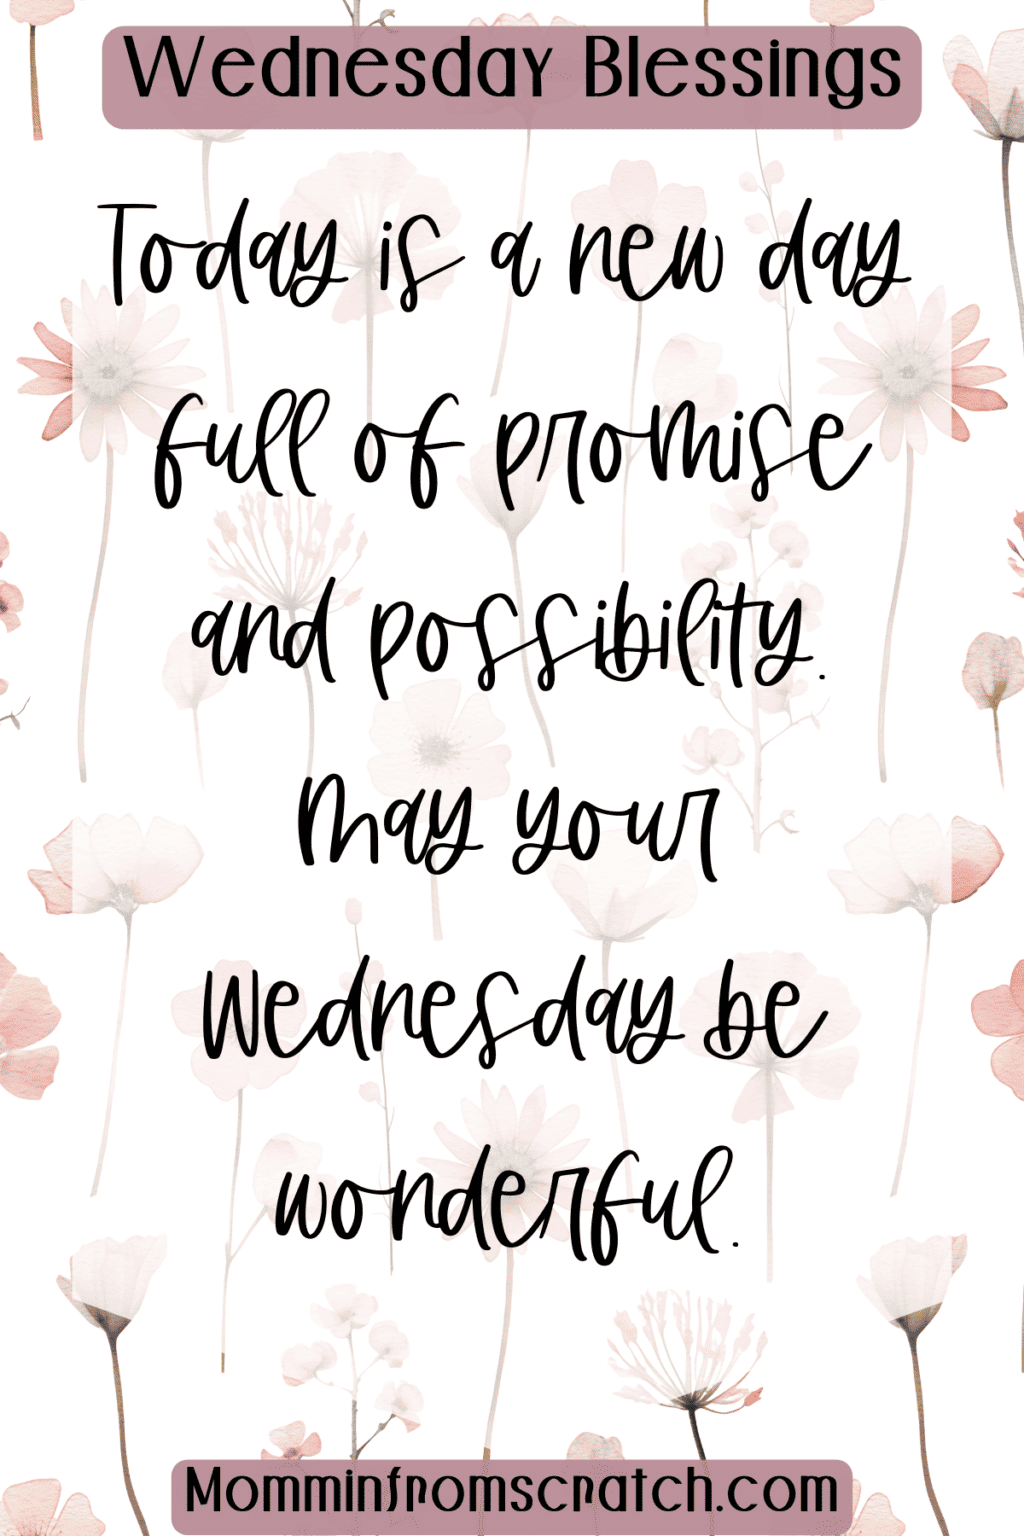 Wednesday Blessings
Today is a new day
full of promise
and possibility.
May your
Wednesday be
wonderful.
Momminfromscratch.com